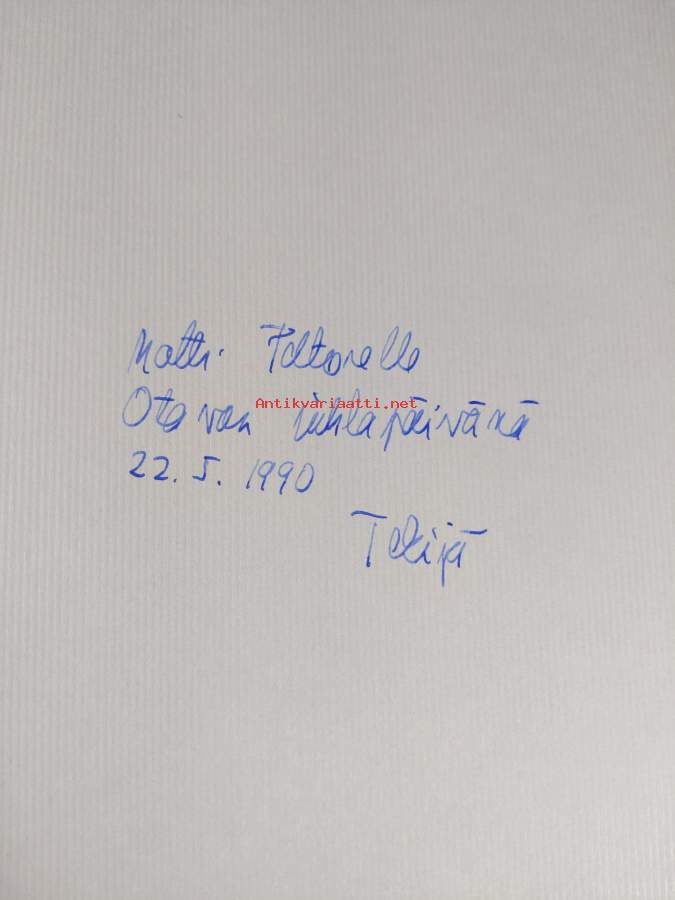 Matti Valtasaarelle
Antikvariaatti.net
Otavan juhlapäivänä
22.5.1990
Tekijä